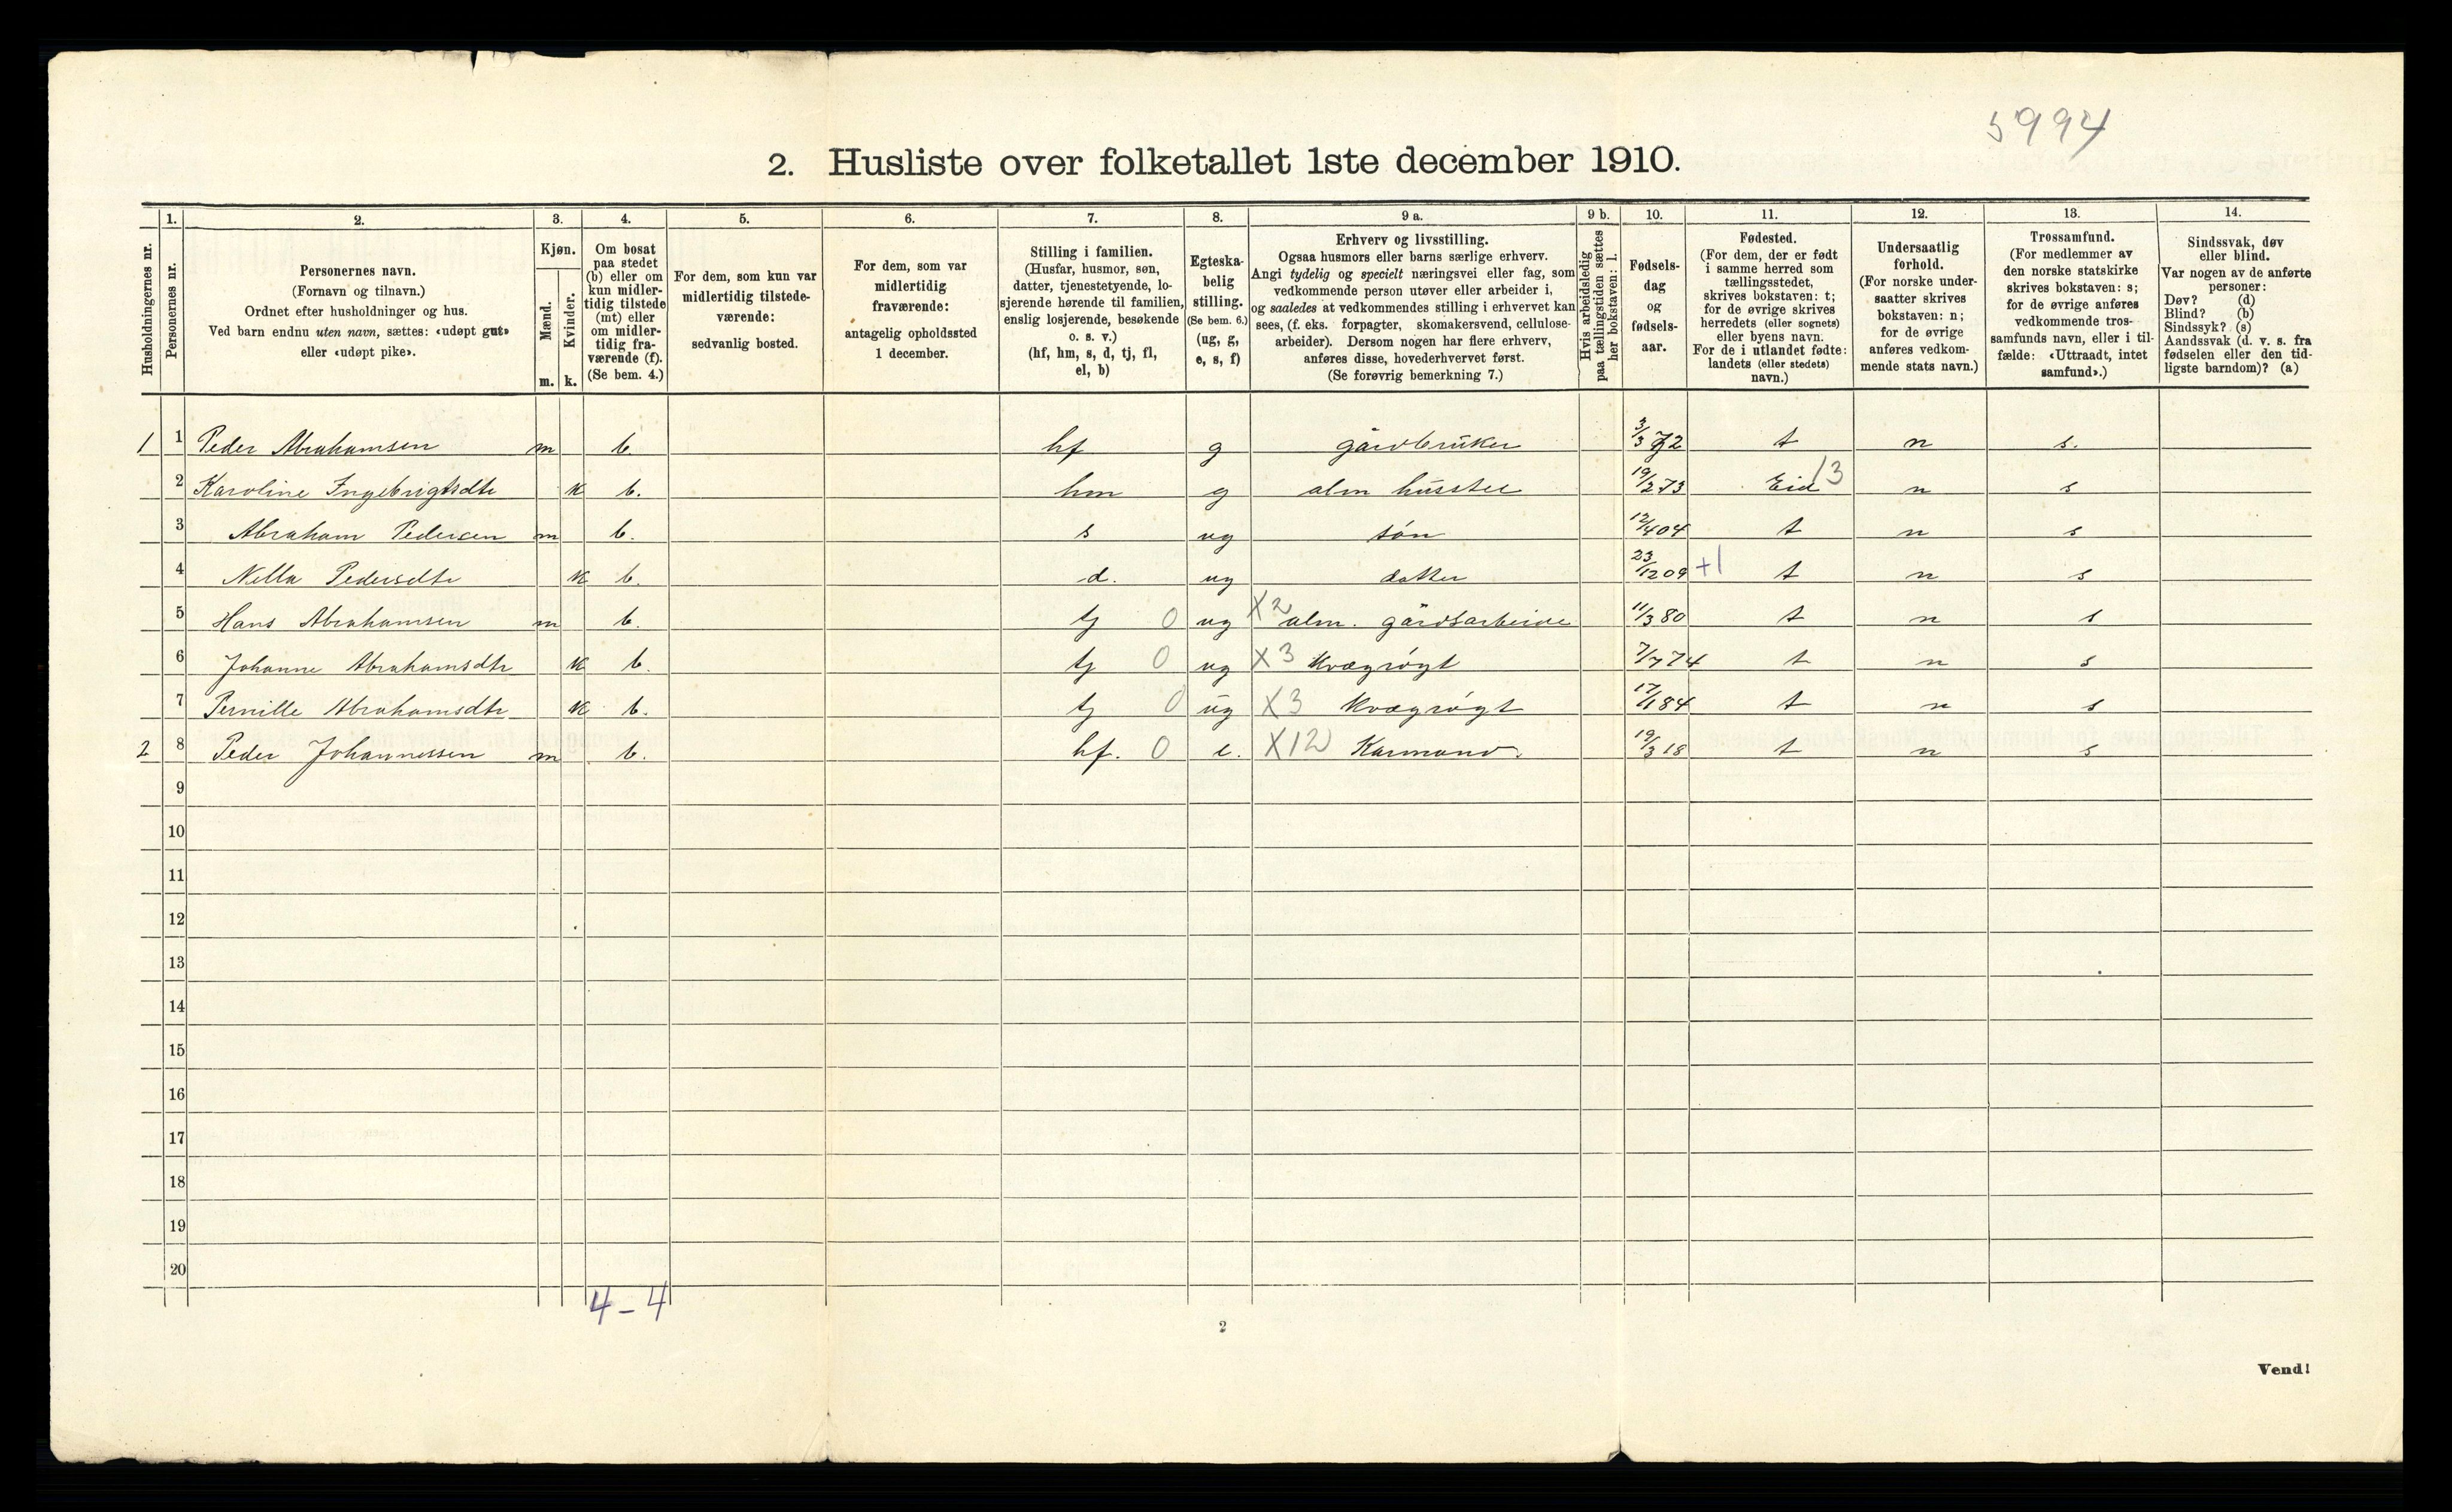 5994
2. Husliste over folketallet 1ste december 1910.
Husholdningernes nr.
1.
Personernes nr.
2.
Personernes navn.
(Fornavn og tilnavn.)
Ordnet efter husholdninger og hus.
Ved barn endnu uten navn, sættes: «udøpt gut»
eller «udøpt pike».
3.
Kjøn.
Mænd.
m.
Kvinder.
k.
4.
Om bosat
paa stedet
(b) eller om
kun midler-
tidig tilstede
(mt) eller
om midler-
tidig fra-
værende (f).
(Se bem. 4.)
5.
For dem, som kun var
midlertidig tilstede-
værende:
sedvanlig bosted.
6.
For dem, som var
midlertidig
fraværende:
antagelig opholdssted
1 december.
7.
Stilling i familien.
(Husfar, husmor, søn,
datter, tjenestetyende, lo-
sjerende hørende til familien,
enslig losjerende, besøkende
o. s. v.)
(hf, hm, s, d, tj, fl,
el, b)
8.
Egteska-
belig
stilling.
(Se bem. 6.)
(ug, g,
e, s, f)
9 a.
Erhverv og livsstilling.
Ogsaa husmors eller barns særlige erhverv.
Angi tydelig og specielt næringsvei eller fag, som
vedkommende person utøver eller arbeider i,
og saaledes at vedkommendes stilling i erhvervet kan
sees, (f. eks. forpagter, skomakersvend, cellulose-
arbeider). Dersom nogen har flere erhverv,
anføres disse, hovederhvervet først.
(Se forøvrig bemerkning 7.)
9 b.
Hvis arbeidsledig
paa tællingstiden sættes
her bokstaven: l.
10.
Fødsels-
dag
og
fødsels-
aar.
11.
Fødested.
(For dem, der er født
i samme herred som
tællingsstedet,
skrives bokstaven: t;
for de øvrige skrives
herredets (eller sognets)
eller byens navn.
For de i utlandet fødte:
landets (eller stedets)
navn.)
12.
Undersaatlig
forhold.
(For norske under-
saatter skrives
bokstaven: n;
for de øvrige
anføres vedkom-
mende stats navn.)
13.
Trossamfund.
(For medlemmer av
den norske statskirke
skrives bokstaven: s;
for de øvrige anføres
vedkommende tros-
samfunds navn, eller i til-
fælde: «Uttraadt, intet
samfund».)
14.
Sindssvak, døv
eller blind.
Var nogen av de anførte
personer:
Døv? (d)
Blind? (b)
Sindssyk? (s)
Aandssvak (d. v. s. fra
fødselen eller den tid-
ligste barndom)? (a)
1 1 Peder Abrahamsen m b. hf g gårdbruker 3/3 72 t n s.
2 Karoline Ingebrigtsdtr k b. hm g alm husstel 19/2 73 Eid 13 n s
3 Abraham Pedersen m b. s ug søn 12/4 04 t n s
4 Nella Pedersdtr k b. d. ug datter 23/12 09 +1 t n s
5 Hans Abrahamsen m b. tj 0 ug X2 alm. gårdsarbeide 11/3 80 t n s
6 Johanne Abrahamsdtr k b. tj 0 ug X3 Kvægrøgt 7/7 74 t n s
7 Pernille Abrahamsdtr k b. tj 0 ug X3 Kvægrøgt 17/1 84 t n s
2 8 Peder Johannessen m b. hf. 0 e. X12 Kaarmand. 19/3 18 t n s
9
10
11
12
13
14
15
16
17
18
19
20
4 – 4
2
Vend!